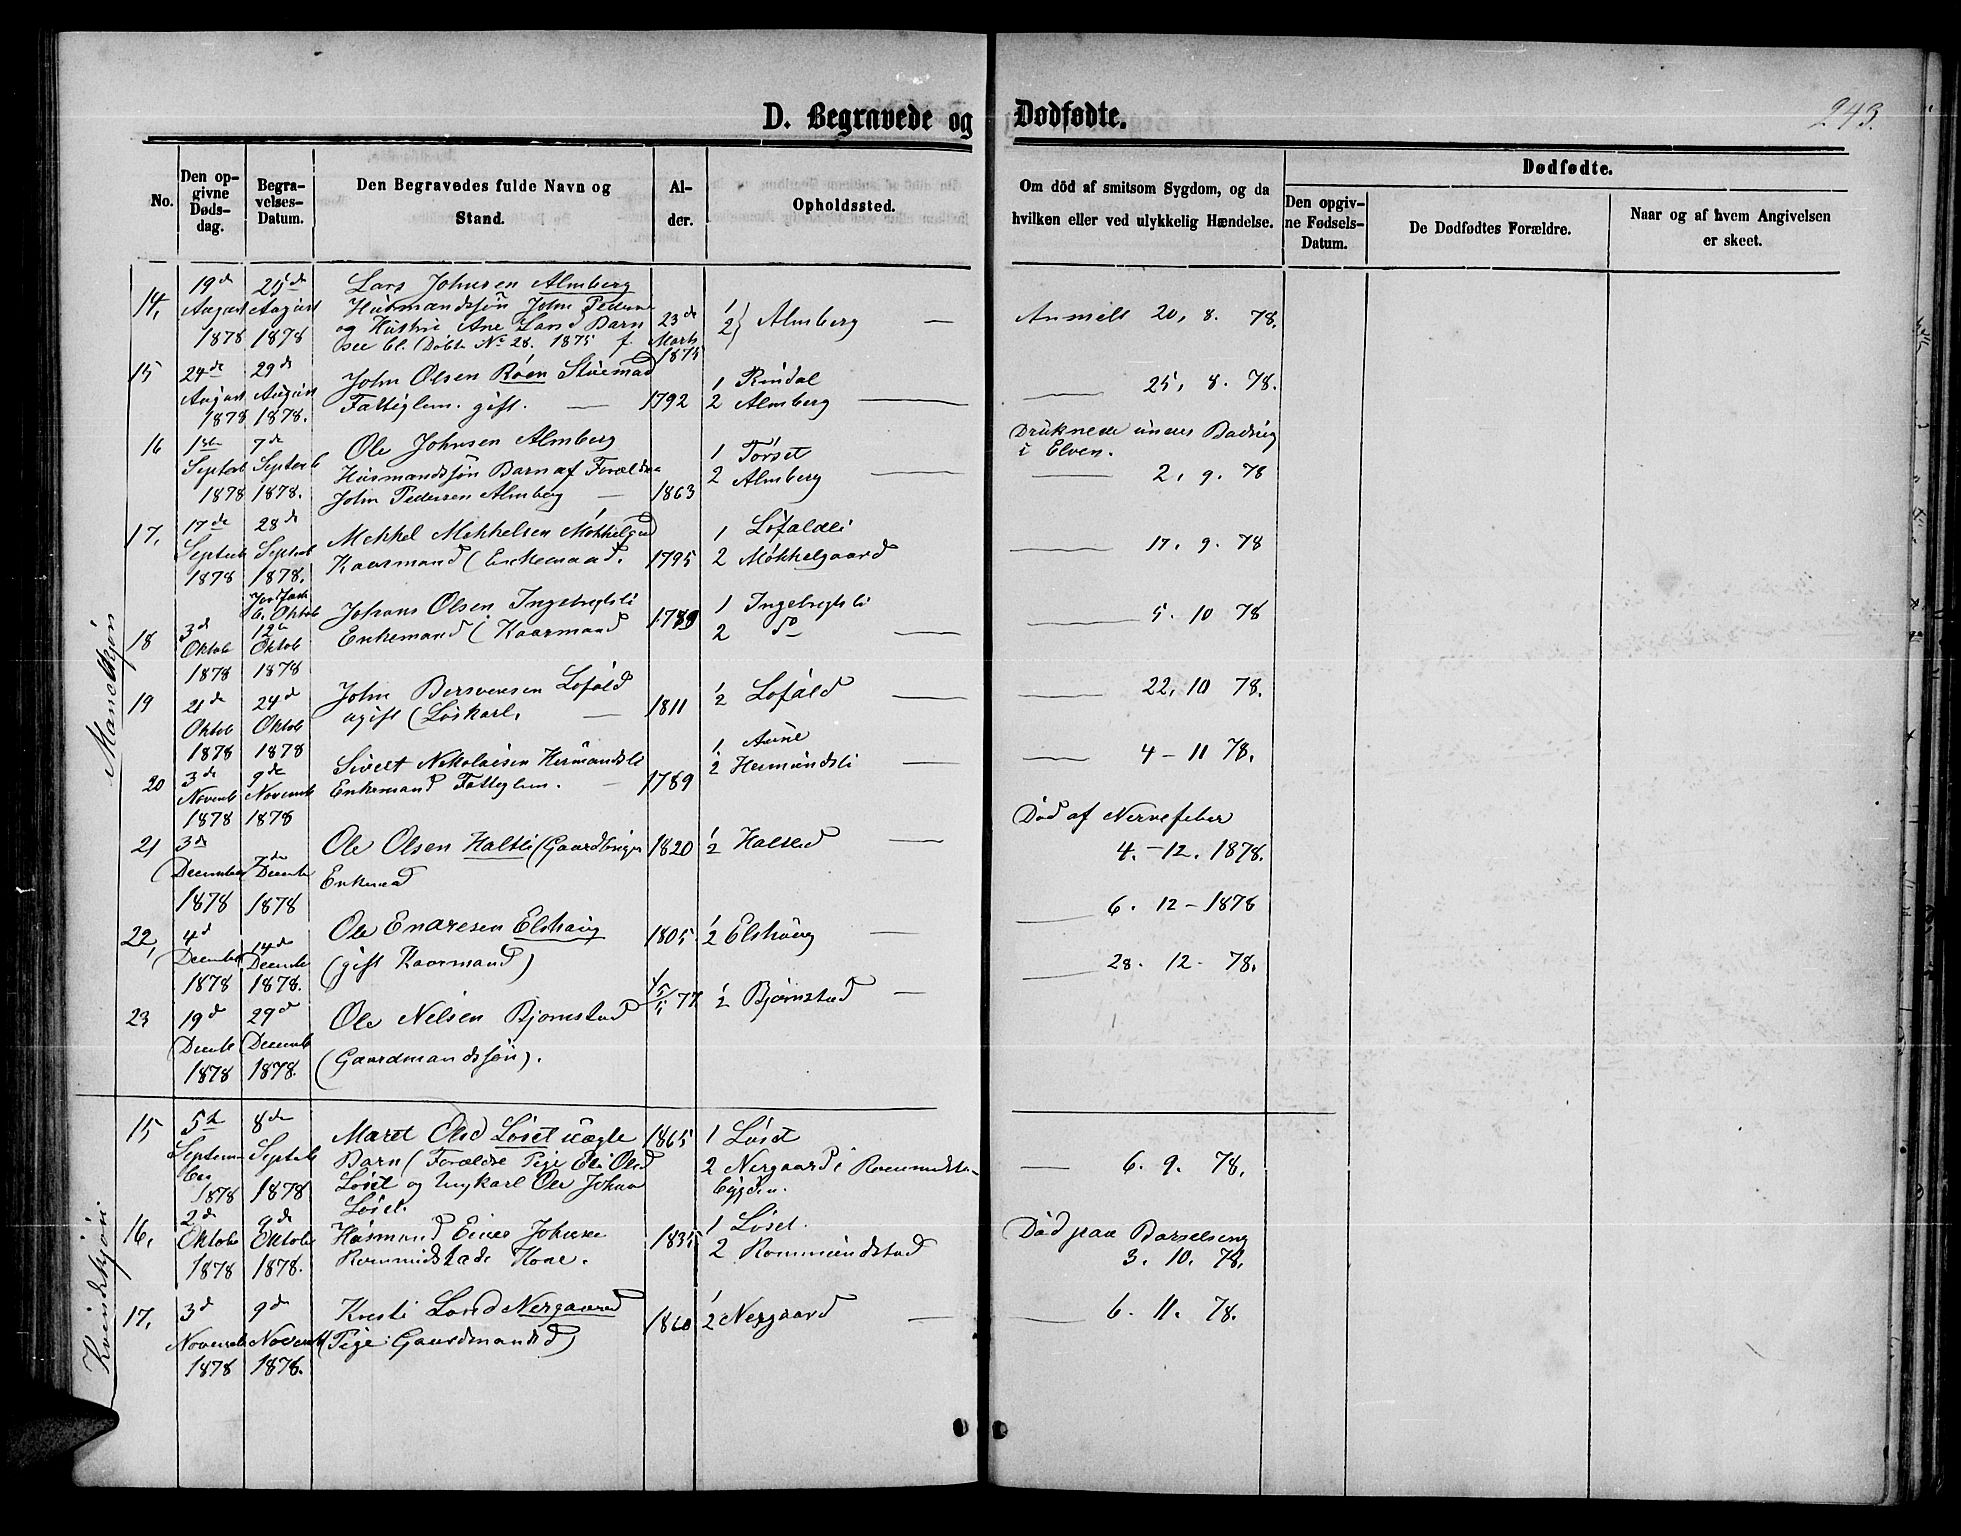 D. Begravede og Dødfødte.
243.
No.
Den op-
givne
Døds-
dag.
Begra-
velses-
Datum.
Den Begravedes fulde Navn og
Stand.
Al-
der.
Opholdssted.
Om död af smitsom Sygdom, og da
hvilken eller ved ulykkelig Hændelse.
Dødfødte.
Den opgiv-
ne Fødsels-
Datum.
De Dødfødtes Forældre.
Naar og af hvem Angivelsen
er skeet.
Mandkjøn
14, 19de August 1878 21de August 1878
Lars Johnsen Almberg
Husmandssøn John Peders
og Hustru Ane Larsd Barn
see bl. Døbte No 28. 1875 f.
23de Marts 1875
1 2 } Almberg —
Anmeldt 20, 8. 78.
15 24de August 1878 29de August 1878.
John Olsen Röen Stuemad
Fattiglem. gift. —
1792
1 Rindal
2 Almberg —
— 25, 8. 78.
16 1ste Septerb 1878 7de Septemb 1878.
Ole Johnsen Almberg
Husmandssøn Barn af Foræld
John Pedersen Almberg —
1863
1 Torset
2 Almberg —
Druknede under Badning
i Elven.
— 2, 9. 78
17, 17de Septeb 1878 28de Septeb 1878.
Mekkel Mekkelsen Møkkelgrd
Kaarmand (Enkemand.
1795
1 Løfaldli
2 Møkkelgaard
— 17. 9. 78
18 3de Oktob 1878
6. Oktob
12te Oktob 1878
Johans Olsen Ingebrigtsli
Enkemand (Kaarmand
1789
1 Ingebrigtsli
2 Do —
— 5. 10 78
19 21de Oktob 1878 24de Oktob 1878
John Bersvensen Løfald
ugift (Løskarl. —
1811
1 2 Lofald —
— 22, 10 78.
20 3de Novemb 1878 9de Novemb 1878
Sivert Nikolaisen Hermandsli
Enkemand Fattiglem. —
1789
1 Aune
2 Hermundsli —
— 4 - 11 78.
21 3de December 1878 7de Decemb 1878
Ole Olsen Haltli (Gaardbruger
Enkemad
1820
1 2 Halsed —
Død af Nervefeber
4. - 12. 1878.
22, 4de December 1878 14de Decembe 1878.
Ole Enaresen Elshaug
(gift Kaarmand)
1805
1 2 Elshaug —
— 6. 12 - 1878
23 19de Decemb 1878 29de Decemb 1878
Ole Nilsen Bjørnstad
(Gaardmandssøn).
1 2 Bjørnstad —
— 28. 12. 78.
Kvindekjøn
15 5te Septem-
ber 1878 8de Septeb 1878
Maret Olsd Løset uægte
Barn (Forældre Pige Eli Olsd
Løset og Ungkarl Ole Johan
Løset.
1865
1 Løset
2 Nergaard i Romundsta-
bygden.
— 6. 9. 78.
16, 2de Oktobe 1878 9de Oktobe 1878.
Husmand Einer Johnse
Romundstads Kone.
1835
1 Løset.
2 Rommundstad
Død paa Barselseng
3. 10. 78.
17, 3de Novemb 1878 9de Novemb 1878.
Kristi Larsd Nergaard
(Pige: Gaardmandsd)
1860
1 2 Nergaard —
— 6. 11. 78.